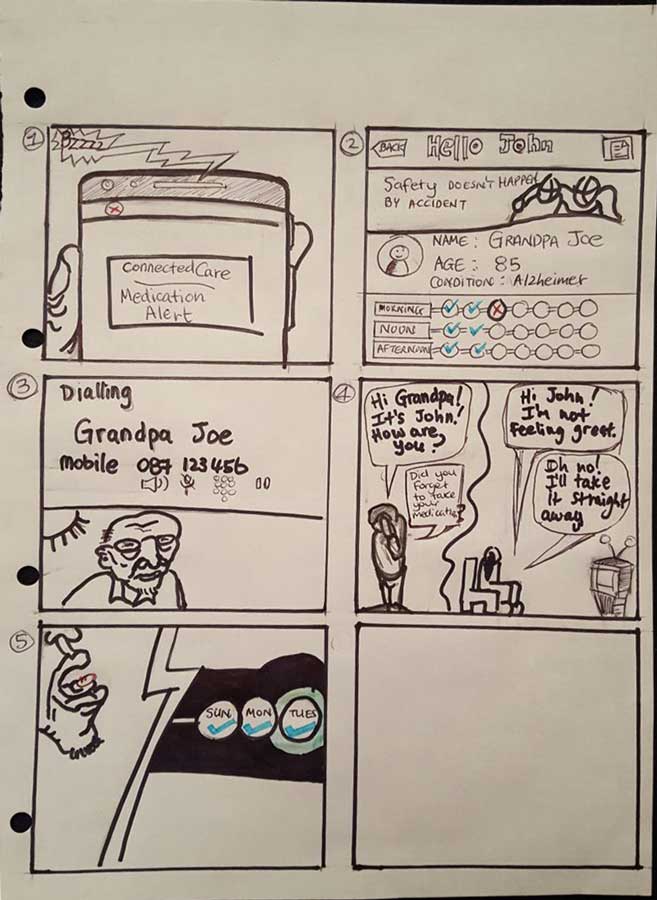 1
Bzzzz
ConnectedCare
Medication
Alert
2
BACK
Hello John
Safety DOESN'T HAPPEN
BY ACCIDENT
NAME: GRANDPA JOE
AGE: 85
CONDITION: Alzheimer
MORNING
NOON
AFTERNOON
3
Dialling
Grandpa Joe
mobile 087 123456
4
Hi Grandpa!
It's John!
How are
you?
Did you
forget
to take
your
medication?
Hi John!
I'm not
feeling great.
Oh no!
I'll take
it straight
away
5
SUN MON TUES